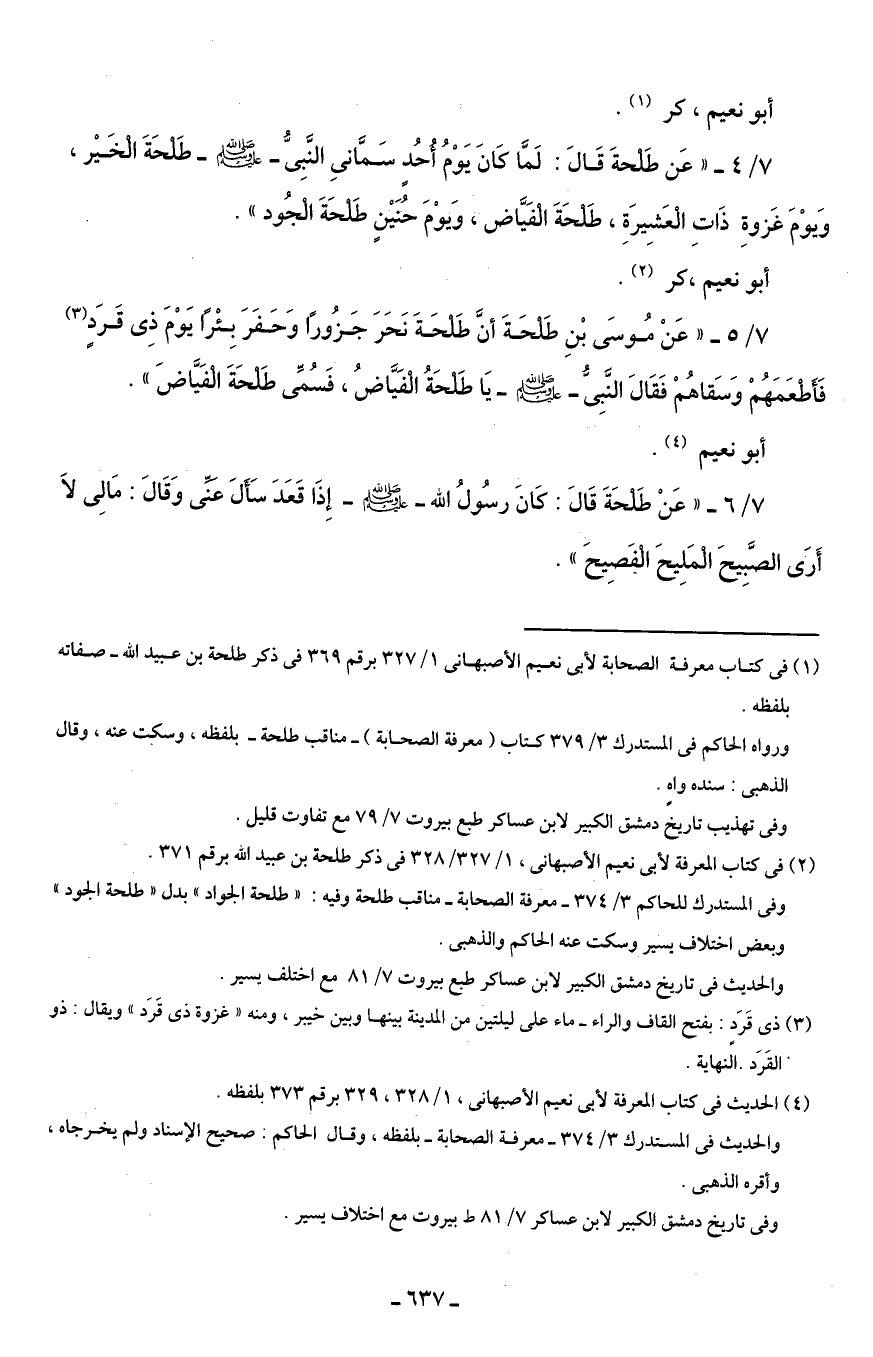 أبو نعيم ، كر (١) .
٧/ ٤ ـ « عَن طَلْحةَ قَـالَ : لَمَّا كَانَ يَوْمُ أُحُدٍ سَـمَّانِى النَّبِىُّ ـ ﷺ ـ طَلْحَةَ الْخَـيْرِ ،
وَيَوْمَ غَزوةِ ذَاتِ الْعَشِيرَةِ ، طَلْحَةَ الْفَيَّاض ، وَيَوْمَ حُنَيْنٍ طَلْحَةَ الْجُود » .
أبو نعيم ،كر (٢) .
٧/ ٥ ـ « عَنْ مُـوسَى بْنِ طَلْحَـةَ أنَّ طَلْحَـةَ نَحَرَ جَـزُورًا وَحَـفَرَ بِـئْرًا يَوْمَ ذِى قَـرَدٍ(٣)
فَأَطْعَمَهُمْ وَسَقاهُمْ فَقَالَ النَّبِىُّ ـ ﷺ ـ يَا طَلْحَةُ الْفَيَّاضُ ، فَسُمِّى طَلْحَةَ الْفَيَّاضَ » .
أبو نعيم (٤) .
٧/ ٦ ـ « عَنْ طَلْحَةَ قَالَ : كَانَ رسُولُ الله ـ ﷺ ـ إِذَا قَعَدَ سَأَلَ عَنِّى وَقَالَ : مَالِى لاَ
أَرَى الصَّبِيحَ الْمَلِيحَ الْفَصِيحَ » .
(١) فى كتـاب معرفـة الصحابة لأبى نعـيم الأصبهـانى ١/ ٣٢٧ برقم ٣٦٩ فى ذكر طلحة بن عـبيد الله ـ صـفاته
بلفظه .
ورواه الحاكم فى المستدرك ٣/ ٣٧٩ كـتاب ( معرفة الصحـابة ) ـ مناقب طلحـة ـ بلفظه ، وسكت عنه ، وقال
الذهبى : سنده واهٍ .
وفى تهذيب تاريخ دمشق الكبير لابن عساكر طبع بيروت ٧/ ٧٩ مع تفاوت قليل .
(٢) فى كتاب المعرفة لأبى نعيم الأصبهانى ، ١/ ٣٢٧/ ٣٢٨ فى ذكر طلحة بن عبيد الله برقم ٣٧١ .
وفى المستدرك للحاكم ٣/ ٣٧٤ ـ معرفة الصحابة ـ مناقب طلحة وفيه : « طلحة الجواد » بدل « طلحة الجود »
وبعض اختلاف يسير وسكت عنه الحاكم والذهبى .
والحديث فى تاريخ دمشق الكبير لابن عساكر طبع بيروت ٧/ ٨١ مع اختلف يسير .
(٣) ذى قَرَدٍ : بفتح القاف والراء ـ ماء على ليلتين من المدينة بينهـا وبين خيبر ، ومنه « غزوة ذى قَرَد » ويقال : ذو
القَرَد .النهاية .
(٤) الحديث فى كتاب المعرفة لأبى نعيم الأصبهانى ، ١/ ٣٢٨ ، ٣٢٩ برقم ٣٧٣ بلفظه .
والحديث فى المستدرك ٣/ ٣٧٤ ـ معرفـة الصحابة ـ بلفظه ، وقـال الحاكم : صحيح الإسناد ولم يخـرجاه ،
وأقره الذهبى .
وفى تاريخ دمشق الكبير لابن عساكر ٧/ ٨١ ط بيروت مع اختلاف يسير .
ـ ٦٣٧ ـ